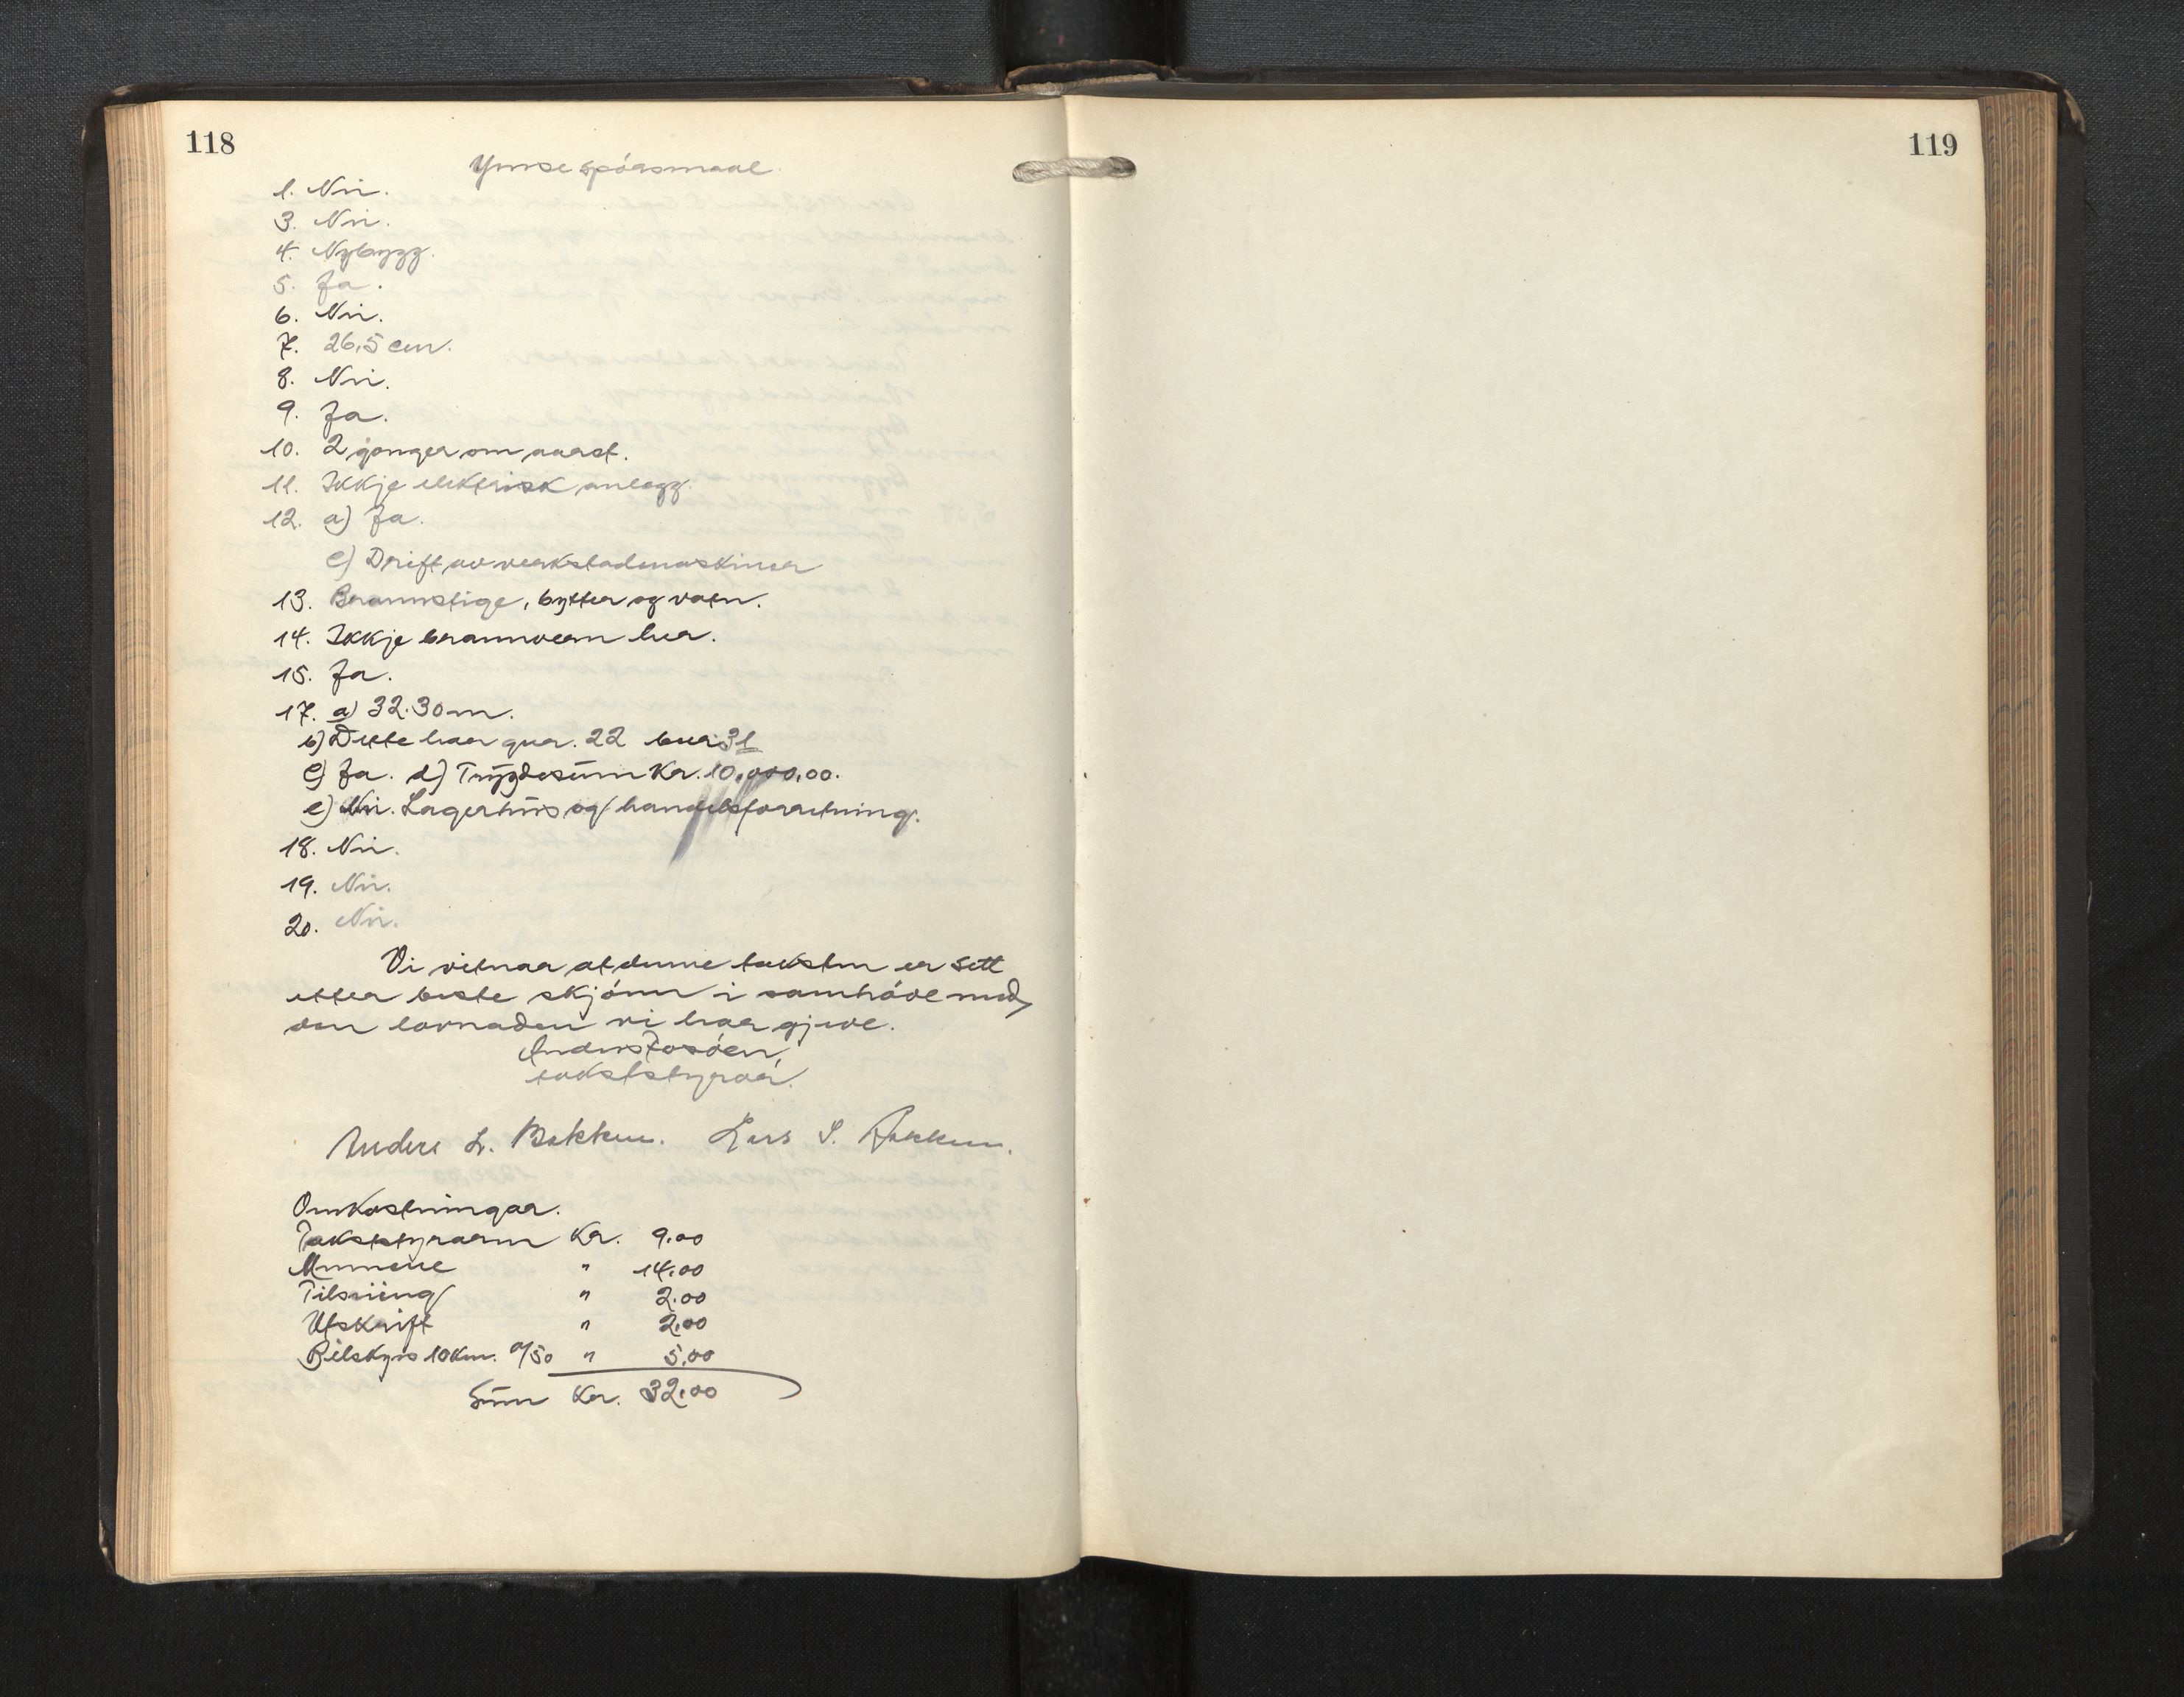 118
119
Ymse spórsmaal.
1. Nei.
3. Nei.
4. Nybygg.
5. Ja.
6. Nei.
7. 26,5 cm.
8. Nei.
9. Ja.
10. 2 gonger om aaret.
11. Ikkje elektrisk anlegg.
12. a) Ja.
c) Drift av verkstadmaskiner
13. Brannstige, bytter og vatn.
14. Ikkje brannvern her.
15. Ja.
17. a) 32.30 m.
b) Dette har gnr. 22 bnr 31
c) Ja. d) Trygdesum Kr. 10.000,00.
e) Nei. Lagerhus og handelsforretning.
18. Nei.
19. Nei.
20. Nei.
Vi vitnar at denne taksten er sett
etter beste skjónn i samhóve med
den lovnaden vi har gjeve.
Anders
takststyrar.
Anders L. Bakken. Lars S.
Omkostningar.
Takststyraren Kr. 9.00
Mennene " 14.00
Tilsiing " 2.00
Utskrift " 2.00
Bilskyss 10 km. a/50 " 5.00
Sum Kr. 32.00